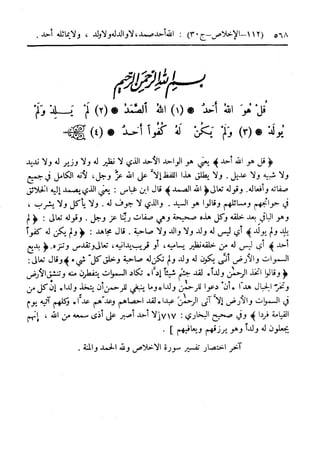 ٥٦٨ (١١٢-الإخلاص-ج٣٠) : الله أحد صمد، لا والد له ولا ولد ، ولا يماثله أحد .
بسم الله الرحمن الرحيم
قُلْ هُوَ اللهُ أَحَدٌ * (١) اللهُ الصَّمَدُ * (٢) لَمْ يَلِدْ وَلَمْ
يُولَدْ * (٣) وَلَمْ يَكُنْ لَهُ كُفُوًا أَحَدٌ * (٤)
﴿ قل هو الله أحد ﴾ يعني هو الواحد الأحد الذي لا نظير له ولا وزير له ولا نديد
ولا شبيه ولا عديل . ولا يطلق هذا اللفظ إلا على الله عزّ وجل ، لأنه الكامل في جميع
صفاته وأفعاله . وقوله تعالى ﴿ الله الصمد ﴾ قال ابن عباس : يعني الذي يصمد إليه الخلائق
في حوائجهم ومسائلهم وقالوا هو السيد . والذي لا جوف له . ولا يأكل ولا يشرب ،
وهو الباقي بعد خلقه وكل هذه صحيحة وهي صفات ربّنا عز وجل . وقوله تعالى : ﴿ لم
يلد ولم يولد ﴾ أي ليس له ولد ولا والد ولا صاحبة . قال مجاهد : ﴿ ولم يكن له كفواً
أحد ﴾ أي ليس له من خلقه نظير يساميه ، أو قريب يدانيه ، تعالى وتقدس وتنزه . ﴿ بديع
السموات والأرض أنّى يكون له ولد ولم تكن له صاحبة وخلق كلّ شيء ﴾ وقال تعالى :
﴿ وقالوا اتخذ الرحمن ولداً * لقد جئتم شيئاً إدّاً * تكاد السموات يتفطرن منه وتنشق الأرض
وتخرّ الجبال هدا * أن دعوا للرحمن ولدا * وما ينبغي للرحمن أن يتخذ ولدا * إن كل من
في السموات والأرض إلا آتى الرحمن عبدا * لقد احصاهم وعدهم عدّا * وكلهم آتيه يوم
القيامة فردا ﴾ وفي صحيح البخاري : ٧١٧ [لا أحد أصبر على أذى سمعه من الله ، إنهم
يجعلون له ولداً وهو يرزقهم ويعافيهم ] .
آخر اختصار تفسير سورة الإخلاص ولله الحمد والمنة .